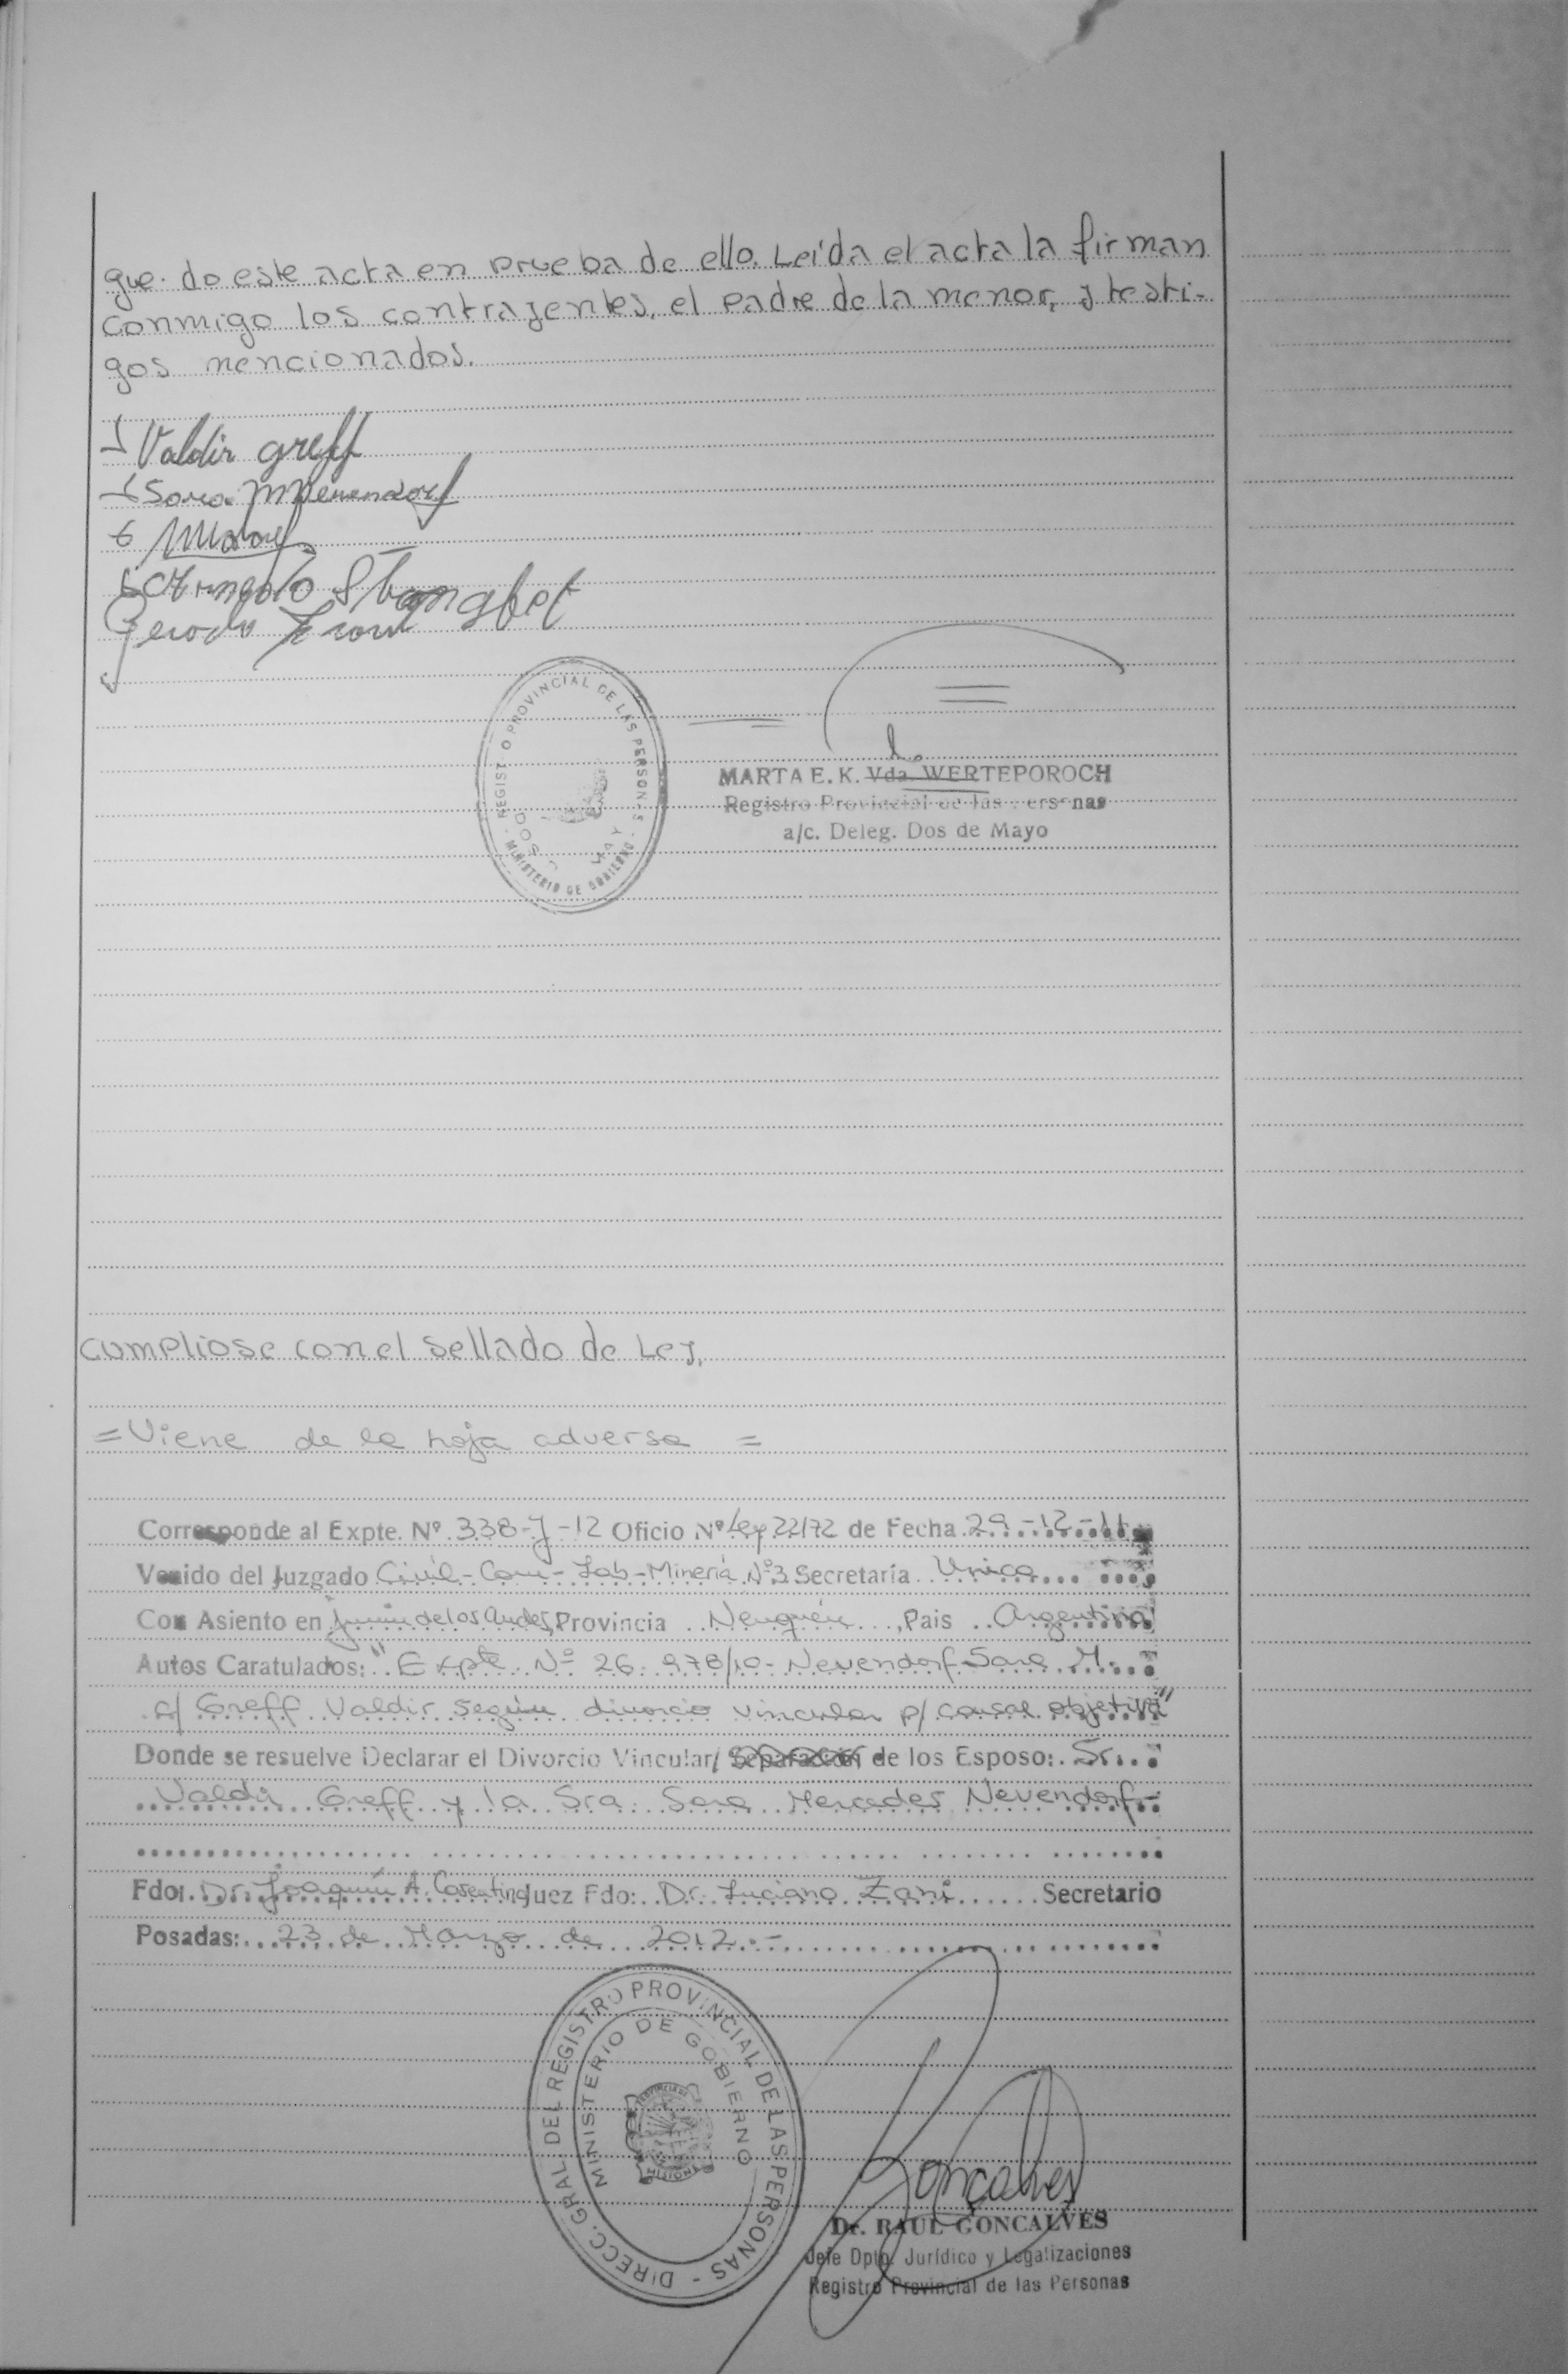 que do este acta en prueba de ello. Leída el acta la firman
conmigo los contrayentes, el padre de la menor, y testi-
gos mencionados.
Valdir greff
Sara M Nevendorf
Arnoldo Stangbet
REGISTRO PROVINCIAL DE LAS PERSONAS
MINISTERIO DE GOBIERNO
MARTA E. K. Vda. WERTEPOROCH
Registro Provincial de las Personas
a/c. Deleg. Dos de Mayo
Cumpliose con el sellado de Ley.
= Viene de la hoja adversa =
Corresponde al Expte. Nº 338-J-12 Oficio Nº Ley 22172 de Fecha 29-12-11
Venido del Juzgado Civil-Com-Lab-Minería Nº 3 Secretaría Unica
Con Asiento en Junín de los Andes, Provincia Neuquén, Pais Argentina
Autos Caratulados: "Expte Nº 26.978/10- Nevendorf Sara M.
c/ Greff Valdir según divorcio vincular p/ causal objetiva"
Donde se resuelve Declarar el Divorcio Vincular/ Separación de los Esposo: Sr.
Valdir Greff y la Sra Sara Mercedes Nevendorf-
Fdo: Dr. Joaquín A. Cosentino Juez Fdo: Dr. Luciano Zani Secretario
Posadas: 23 de Marzo de 2012.-
DIRECC. GRAL. DEL REGISTRO PROVINCIAL DE LAS PERSONAS -
MINISTERIO DE GOBIERNO
MISIONES
Goncalves
Dr. RAUL GONCALVES
Jefe Dpto. Jurídico y Legalizaciones
Registro Provincial de las Personas